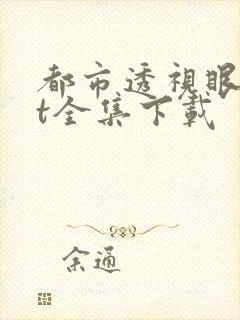 都市透視眼
t全集下載
余通